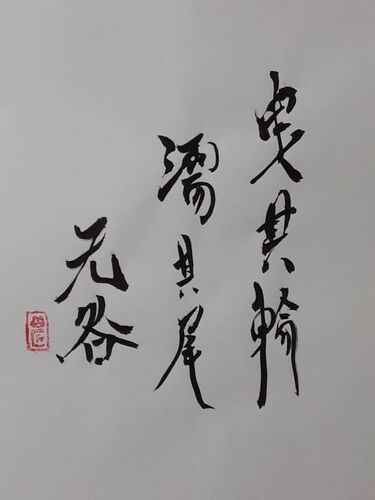 曳其輪
濡其尾
无咎